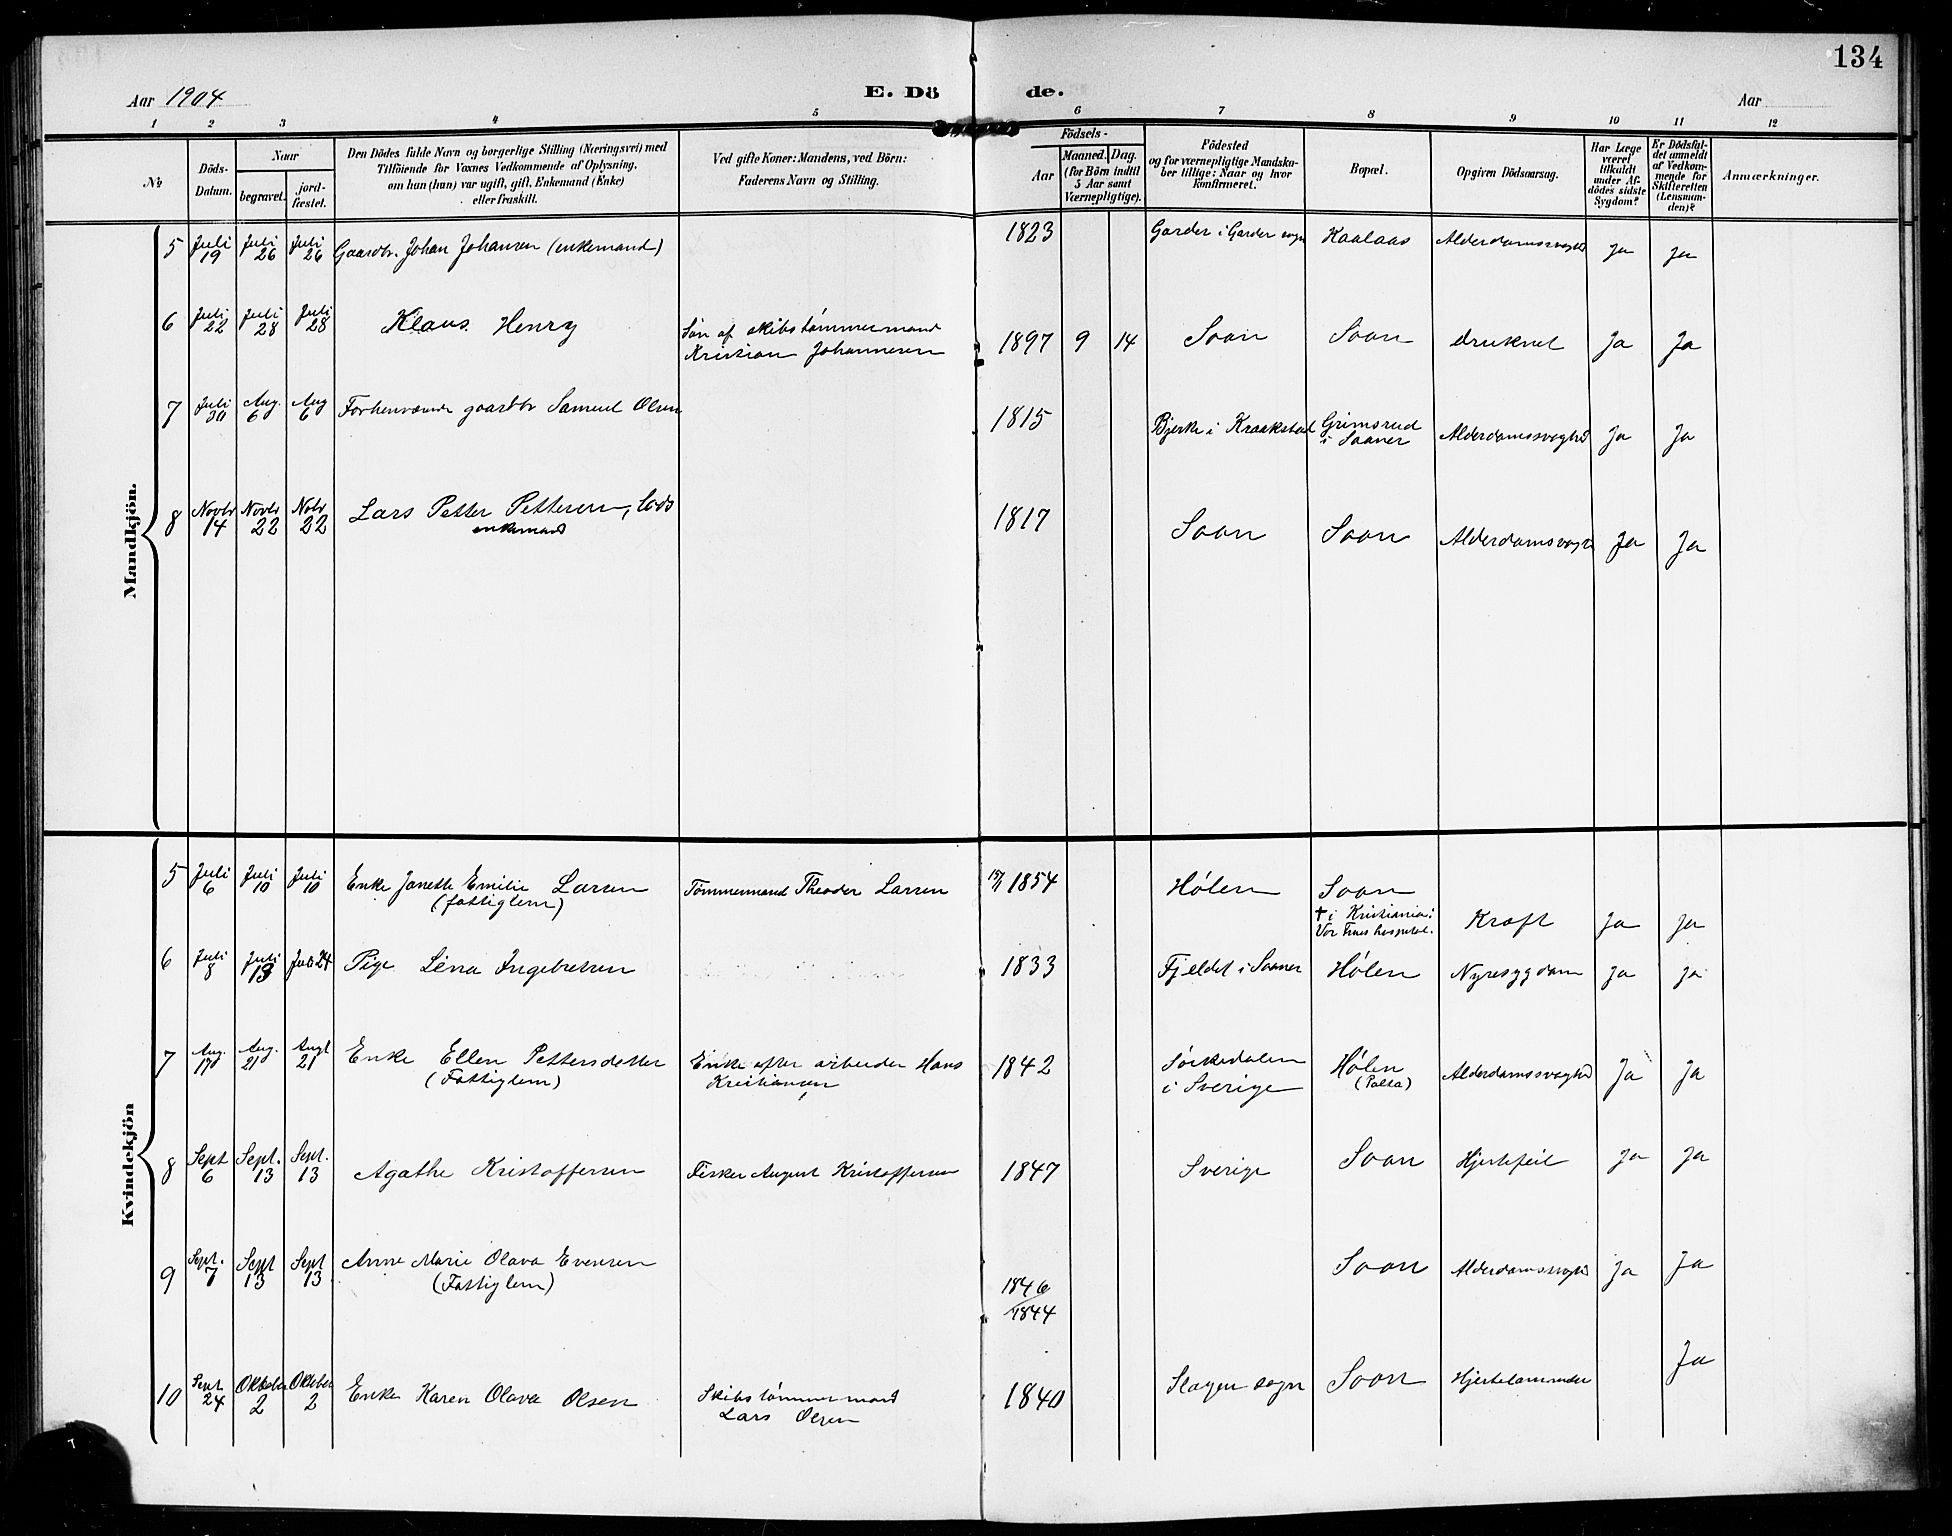 134
Aar 1904
E. Dö de.
Aar
1 2 3 4 5 6 7 8 9 10 11 12
№
Döds-
Datum.
Naar
begravet.
jord-
fæstet.
Den Dödes fulde Navn og borgerlige Stilling (Næringsvei) med
Tilföiende for Voxnes Vedkommende af Oplysning,
om han (hun) var ugift, gift, Enkemand (Enke)
eller fraskilt.
Ved gifte Koner: Mandens, ved Börn:
Faderens Navn og Stilling.
Födsels-
Aar
Maaned. Dag.
(for Börn indtil
5 Aar samt
Værnepligtige).
Födested
og for værnepligtige Mandska-
ber tillige: Naar og hvor
konfirmeret.
Bopæl.
Opgiven Dödsaarsag.
Har Læge
været
tilkaldt
under Af-
dödes sidste
Sygdom?
Er Dödsfal-
det anmeldt
af Vedkom-
mende for
Skifteretten
(Lensman-
den)?
Anmærkninger.
Mandkjön.
5 Juli 19 Juli 26 Juli 26 Gaardbr. Johan Johansen (enkemand) 1823 Garder i Garder sogn Kaalaas Alderdomssvaghed Ja Ja
6 Juli 22 Juli 28 Juli 28 Klaus Henry Søn af skibstømmermand
Kristian Johannesen 1897 9 14 Soon Soon druknet Ja Ja
7 Juli 30 Aug. 6 Aug 6 Forhenværende gaardbr Samuel Olsen 1815 Bjerke i Kraakstad Grimsrud
i Saaner Alderdomssvaghed Ja Ja
8 Novbr 14 Novbr 22 Nobr 22 Lars Petter Pettersen, Lods
enkemand 1817 Soon Soon Alderdomsvaghed Ja Ja
Kvindekjön
5 Juli 6 Juli 10 Juli 10 Enke Janette Emilie Larsen
(fattiglem) Tømmermand Theodor Larsen 1854 Hølen Soon
† i Kristiania i
Vor Frues hospital. Kræft Ja Ja
6 Juli 8 Juli 13 Juli 24 Pige Lena Ingebretsen 1833 Fjeldet i Saaner Hølen Nyresygdom Ja Ja
7 Aug. 17 Aug. 21 Augt 21 Enke Ellen Pettersdatter
(Fattiglem) Enke efter arbeider Hans
Kristiansen 1842 Sørkedalen
i Sverige Hølen
Alderdomssvaghed Ja Ja
8 Sept 6 Sept. 13 Sept. 13 Agathe Kristoffersen Fisker August Kristoffersen 1847 Sverige Soon Hjertefeil Ja Ja
9 Sept. 7 Sept 13 Sept 13 Anne Marie Olava Evensen
(Fattiglem) 1846
/1844 Soon Alderdomssvaghed Ja Ja
10 Sept 24 Oktober 2 Oktober 2 Enke Karen Olava Olsen Skibstømmermand
Lars Olsen 1840 Slagen sogn Soon Hjertelammelse Ja